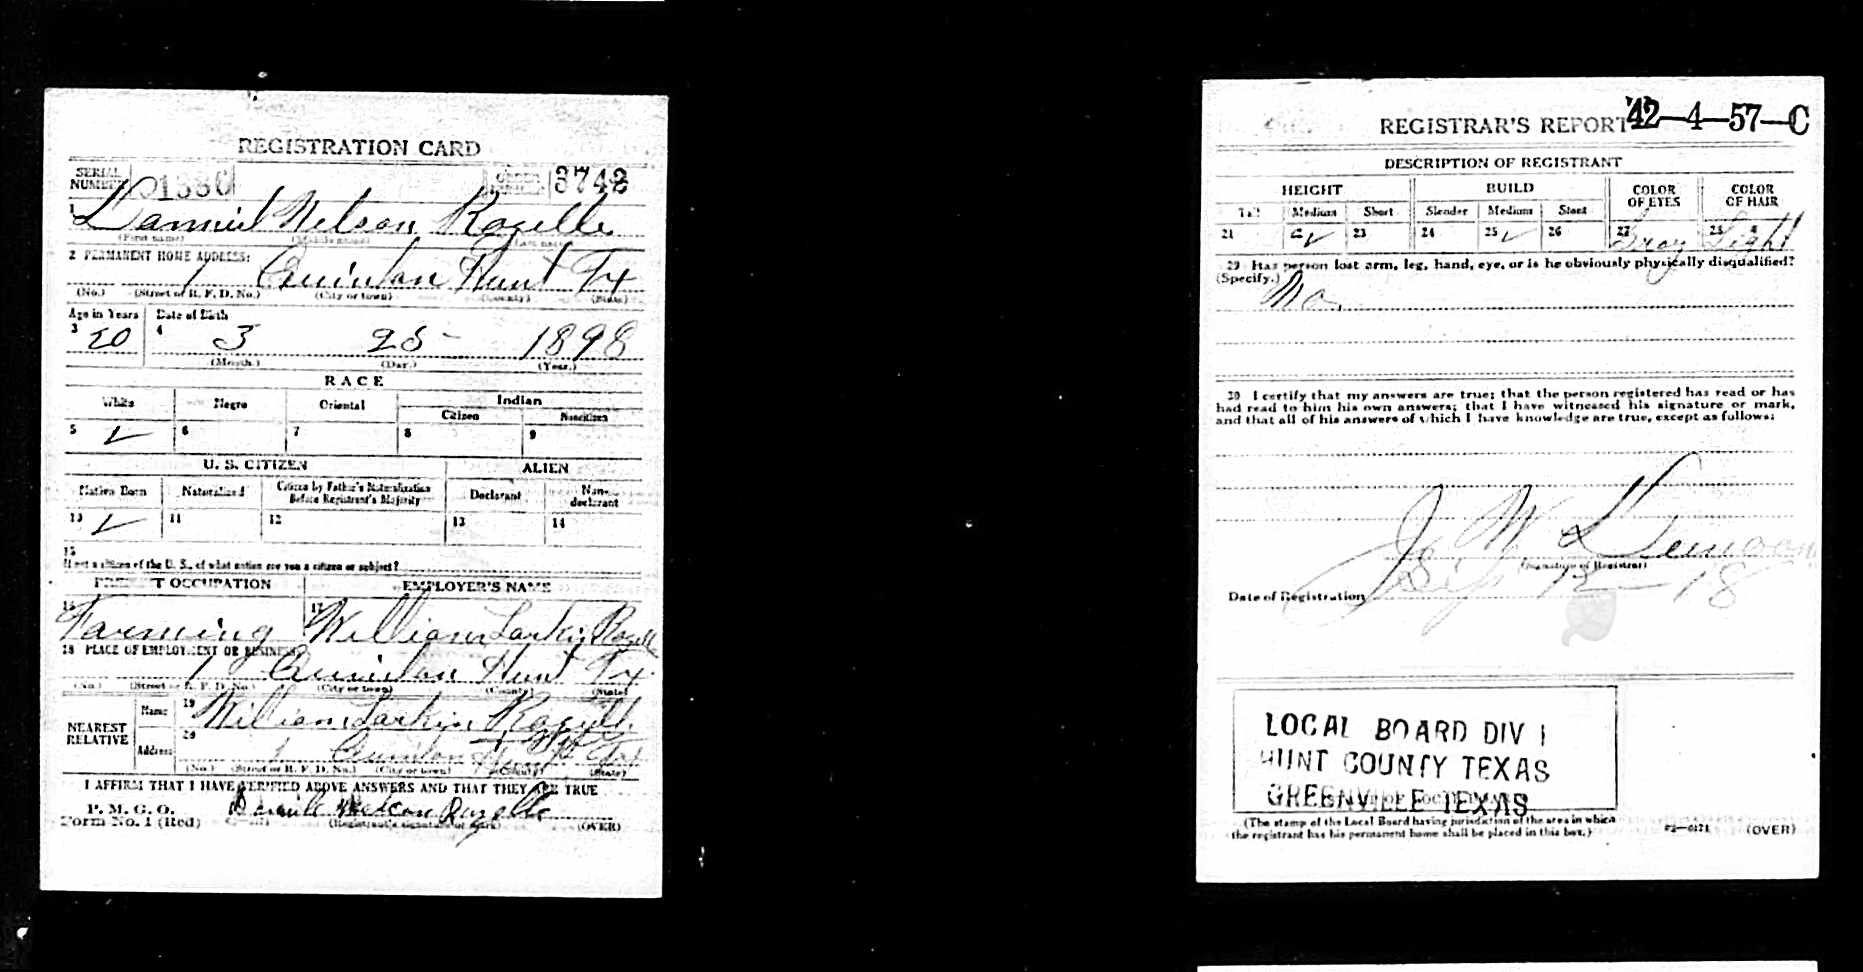 REGISTRATION CARD
SERIAL NUMBER 1386 ORDER NUMBER 3742
1 Danniel Nelson Rozelle
(First name) (Middle name) (Last name)
2 PERMANENT HOME ADDRESS:
1 Quinlan Hunt Tx
(No.) (Street or R. F. D. No.) (City or town) (County) (State)
Age in Years Date of Birth
3 20 4 3 25 - 1898
(Month.) (Day.) (Year.)
RACE
White Negro Oriental Indian
Citizen Noncitizen
5 ✓ 6 7 8 9
U. S. CITIZEN ALIEN
Native Born Naturalized Citizen by Father's Naturalization Before Registrant's Majority Declarant Non-declarant
10 ✓ 11 12 13 14
15
If not a citizen of the U. S., of what nation are you a citizen or subject?
PRESENT OCCUPATION EMPLOYER'S NAME
16 Farming 17 William Larkin Rozell
18 PLACE OF EMPLOYMENT OR BUSINESS:
1 Quinlan Hunt Tx
(No.) (Street or R. F. D. No.) (City or town) (County) (State)
NEAREST RELATIVE Name 19 William Larkin Rozelle
Address 20 1 Quinlan Hunt Tx
(No.) (Street or R. F. D. No.) (City or town) (County) (State)
I AFFIRM THAT I HAVE VERIFIED ABOVE ANSWERS AND THAT THEY ARE TRUE
P. M. G. O.
Form No. 1 (Red) Nelson Rozelle
(Registrant's signature or mark) (OVER)
REGISTRAR'S REPORT 42-4-57-C
DESCRIPTION OF REGISTRANT
HEIGHT BUILD COLOR OF EYES COLOR OF HAIR
Tall Medium Short Slender Medium Stout
21 22 ✓ 23 24 25 ✓ 26 27 Gray 28 Light
29 Has person lost arm, leg, hand, eye, or is he obviously physically disqualified?
(Specify.) No.
30 I certify that my answers are true; that the person registered has read or has
had read to him his own answers; that I have witnessed his signature or mark,
and that all of his answers of which I have knowledge are true, except as follows:
J. W.
(Signature of Registrar)
Date of Registration 12 - 18
LOCAL BOARD DIV 1
HUNT COUNTY TEXAS
GREENVILLE TEXAS
(The stamp of the Local Board having jurisdiction of the area in which
the registrant has his permanent home shall be placed in this box.) (OVER)